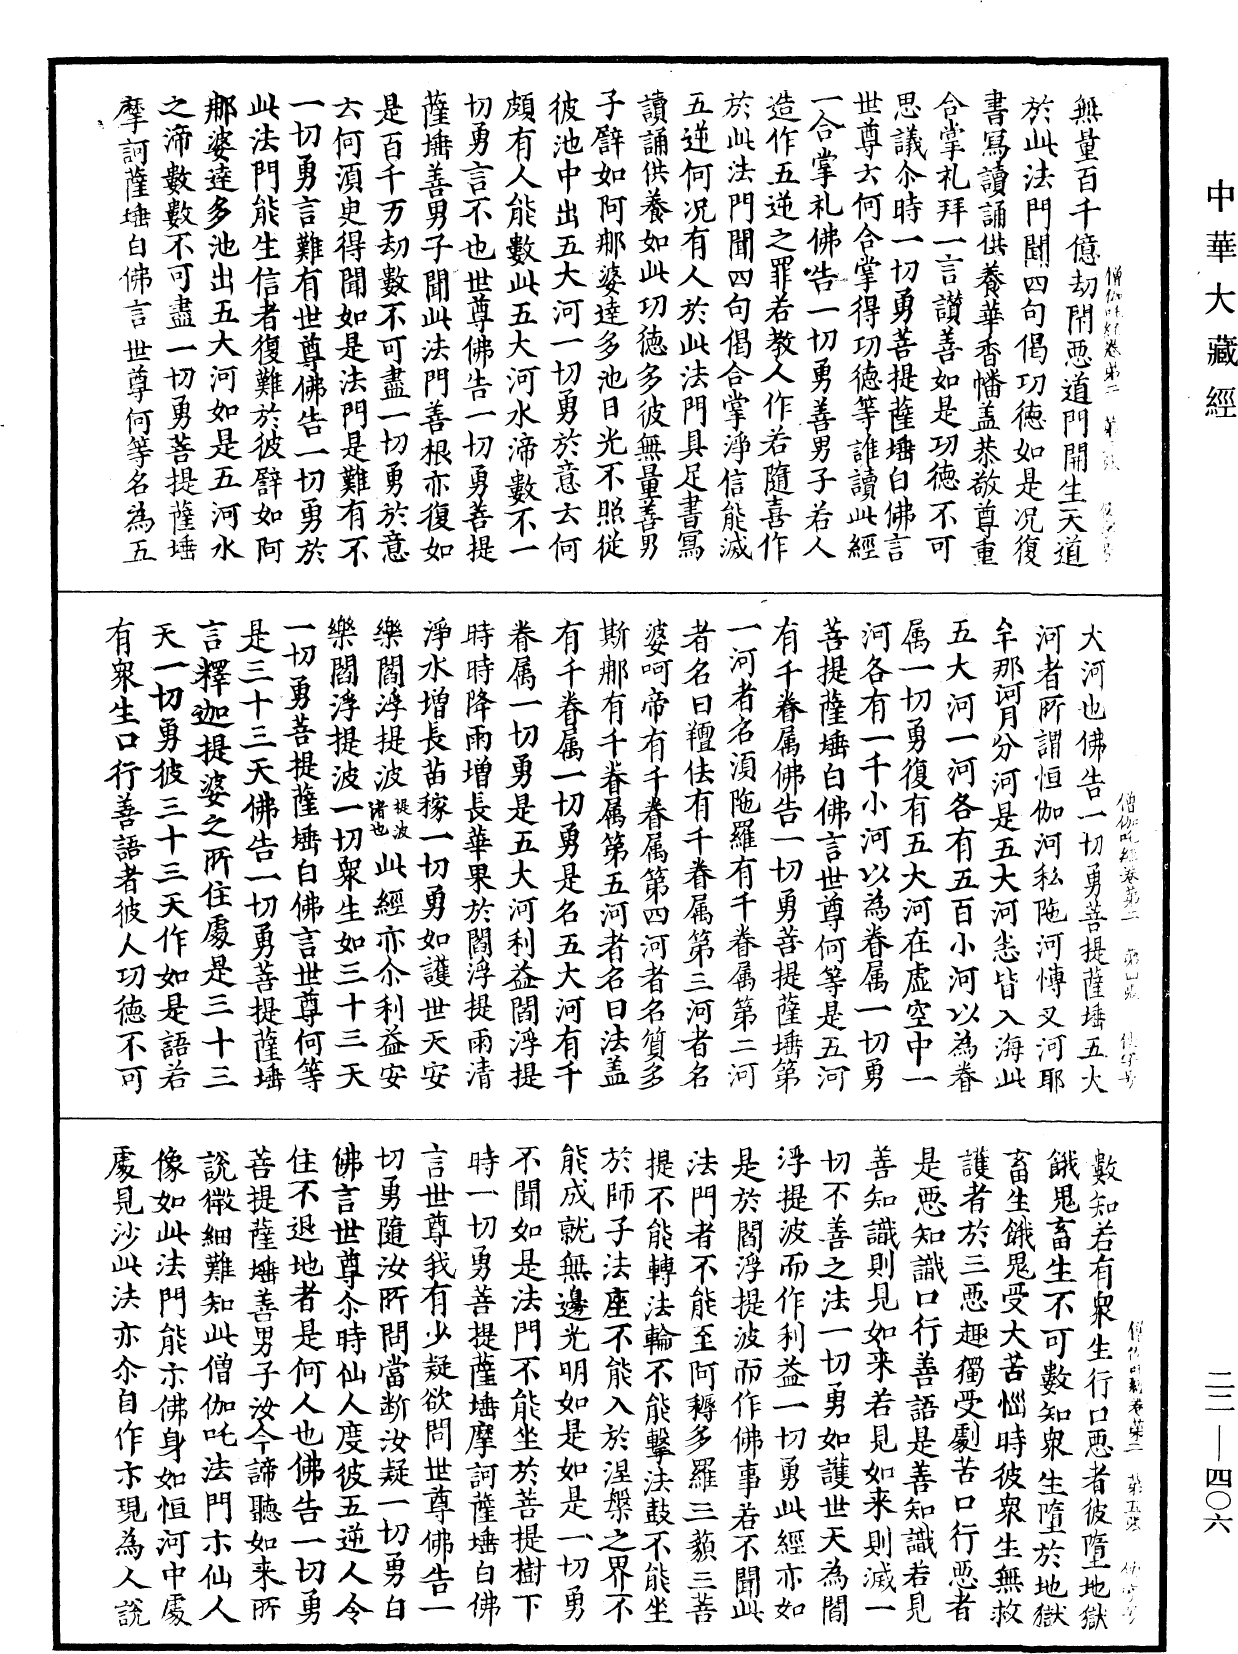 中華大藏經
無量百千億劫閇惡道門開生天道
於此法門聞四句偈功德如是況復
書寫讀誦供養華香幡盖恭敬尊重
合掌礼拜一言讃善如是功德不可
思議尒時一切勇菩提薩埵白佛言
世尊云何合掌得功德等誰讀此經
一合掌礼佛告一切勇善男子若人
造作五逆之罪若教人作若隨喜作
於此法門聞四句偈合掌淨信能滅
五逆何況有人於此法門具足書寫
讀誦供養如此功德多彼無量善男
子譬如阿那婆達多池日光不照從
彼池中出五大河一切勇於意云何
頗有人能數此五大河水渧數不一
切勇言不也世尊佛告一切勇菩提
薩埵善男子聞此法門善根亦復如
是百千万劫數不可盡一切勇於意
云何湏臾得聞如是法門是難有不
一切勇言難有世尊佛告一切勇於
此法門能生信者復難於彼譬如阿
那婆達多池出五大河如是五河水
之渧數數不可盡一切勇菩提薩埵
摩訶薩埵白佛言世尊何等名為五
僧伽吒經卷第二
大河也佛告一切勇菩提薩埵五大
河者所謂恒伽河私陁河愽叉河耶
牟那河月分河是五大河悉皆入海此
五大河一河各有五百小河以為眷
属一切勇復有五大河在虛空中一
河各有一千小河以為眷属一切勇
菩提薩埵白佛言世尊何等是五河
有千眷属佛告一切勇菩提薩埵第
一河者名湏陁羅有千眷属第二河
者名曰羶佉有千眷属第三河者名
婆呵帝有千眷属第四河者名質多
斯那有千眷属第五河者名曰法盖
有千眷属一切勇是名五大河有千
眷属一切勇是五大河利益閻浮提
時時降雨增長華果於閻浮提雨清
淨水增長苗稼一切勇如護世天安
樂閻浮提波提波諸也此經亦尒利益安
樂閻浮提波一切衆生如三十三天
一切勇菩提薩埵白佛言世尊何等
是三十三天佛告一切勇菩提薩埵
言釋迦提婆之所住處是三十三
天一切勇彼三十三天作如是語若
有衆生口行善語者彼人功德不可
數知若有衆生行口惡者彼墮地獄
餓鬼畜生不可數知衆生墮於地獄
畜生餓鬼受大苦惱時彼衆生無救
護者於三惡趣獨受劇苦口行惡者
是惡知識口行善語是善知識若見
善知識則見如来若見如来則滅一
切不善之法一切勇如護世天為閻
浮提波而作利益一切勇此經亦如
是於閻浮提波而作佛事若不聞此
法門者不能至阿耨多羅三藐三菩
提不能轉法輪不能擊法鼓不能坐
於師子法座不能入於涅槃之界不
能成就無邊光明如是如是一切勇
不聞如是法門不能坐於菩提樹下
時一切勇菩提薩埵摩訶薩埵白佛
言世尊我有少疑欲問世尊佛告一
切勇隨汝所問當断汝疑一切勇白
佛言世尊尒時仙人度彼五逆人令
住不退地者是何人也佛告一切勇
菩提薩埵善男子汝今諦聽如来所
說微細難知此僧伽吒法門示仙人
像如此法門能示佛身如恒河中處
處見沙此法亦尒自作示現為人說
二二—四〇六